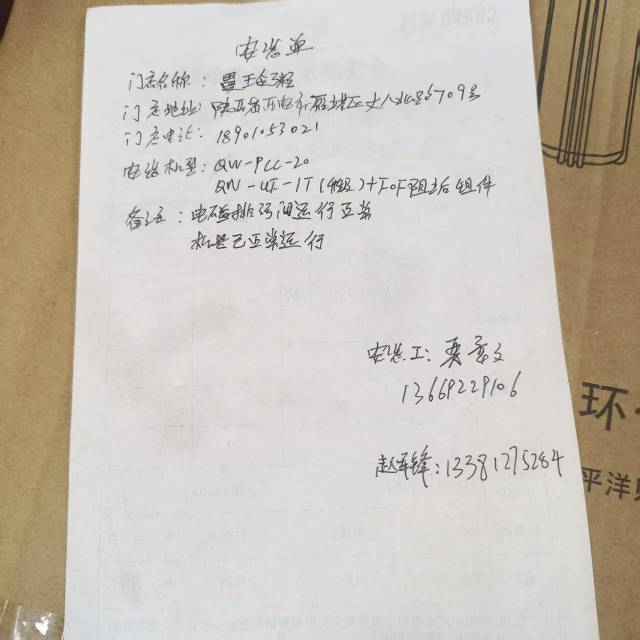 安装单
门店名称：曹王台粥
门店地址：陕西省西安市雁塔区丈八北路709号
门店电话：18901053021
安装机型：QW-PCC-20
QW-UF-1T(  )+FOF阻垢组件
备注：电磁排污阀运行正常
机器已正常运行
安装工：
13669229106
赵军锋：13381275284
环·
平洋